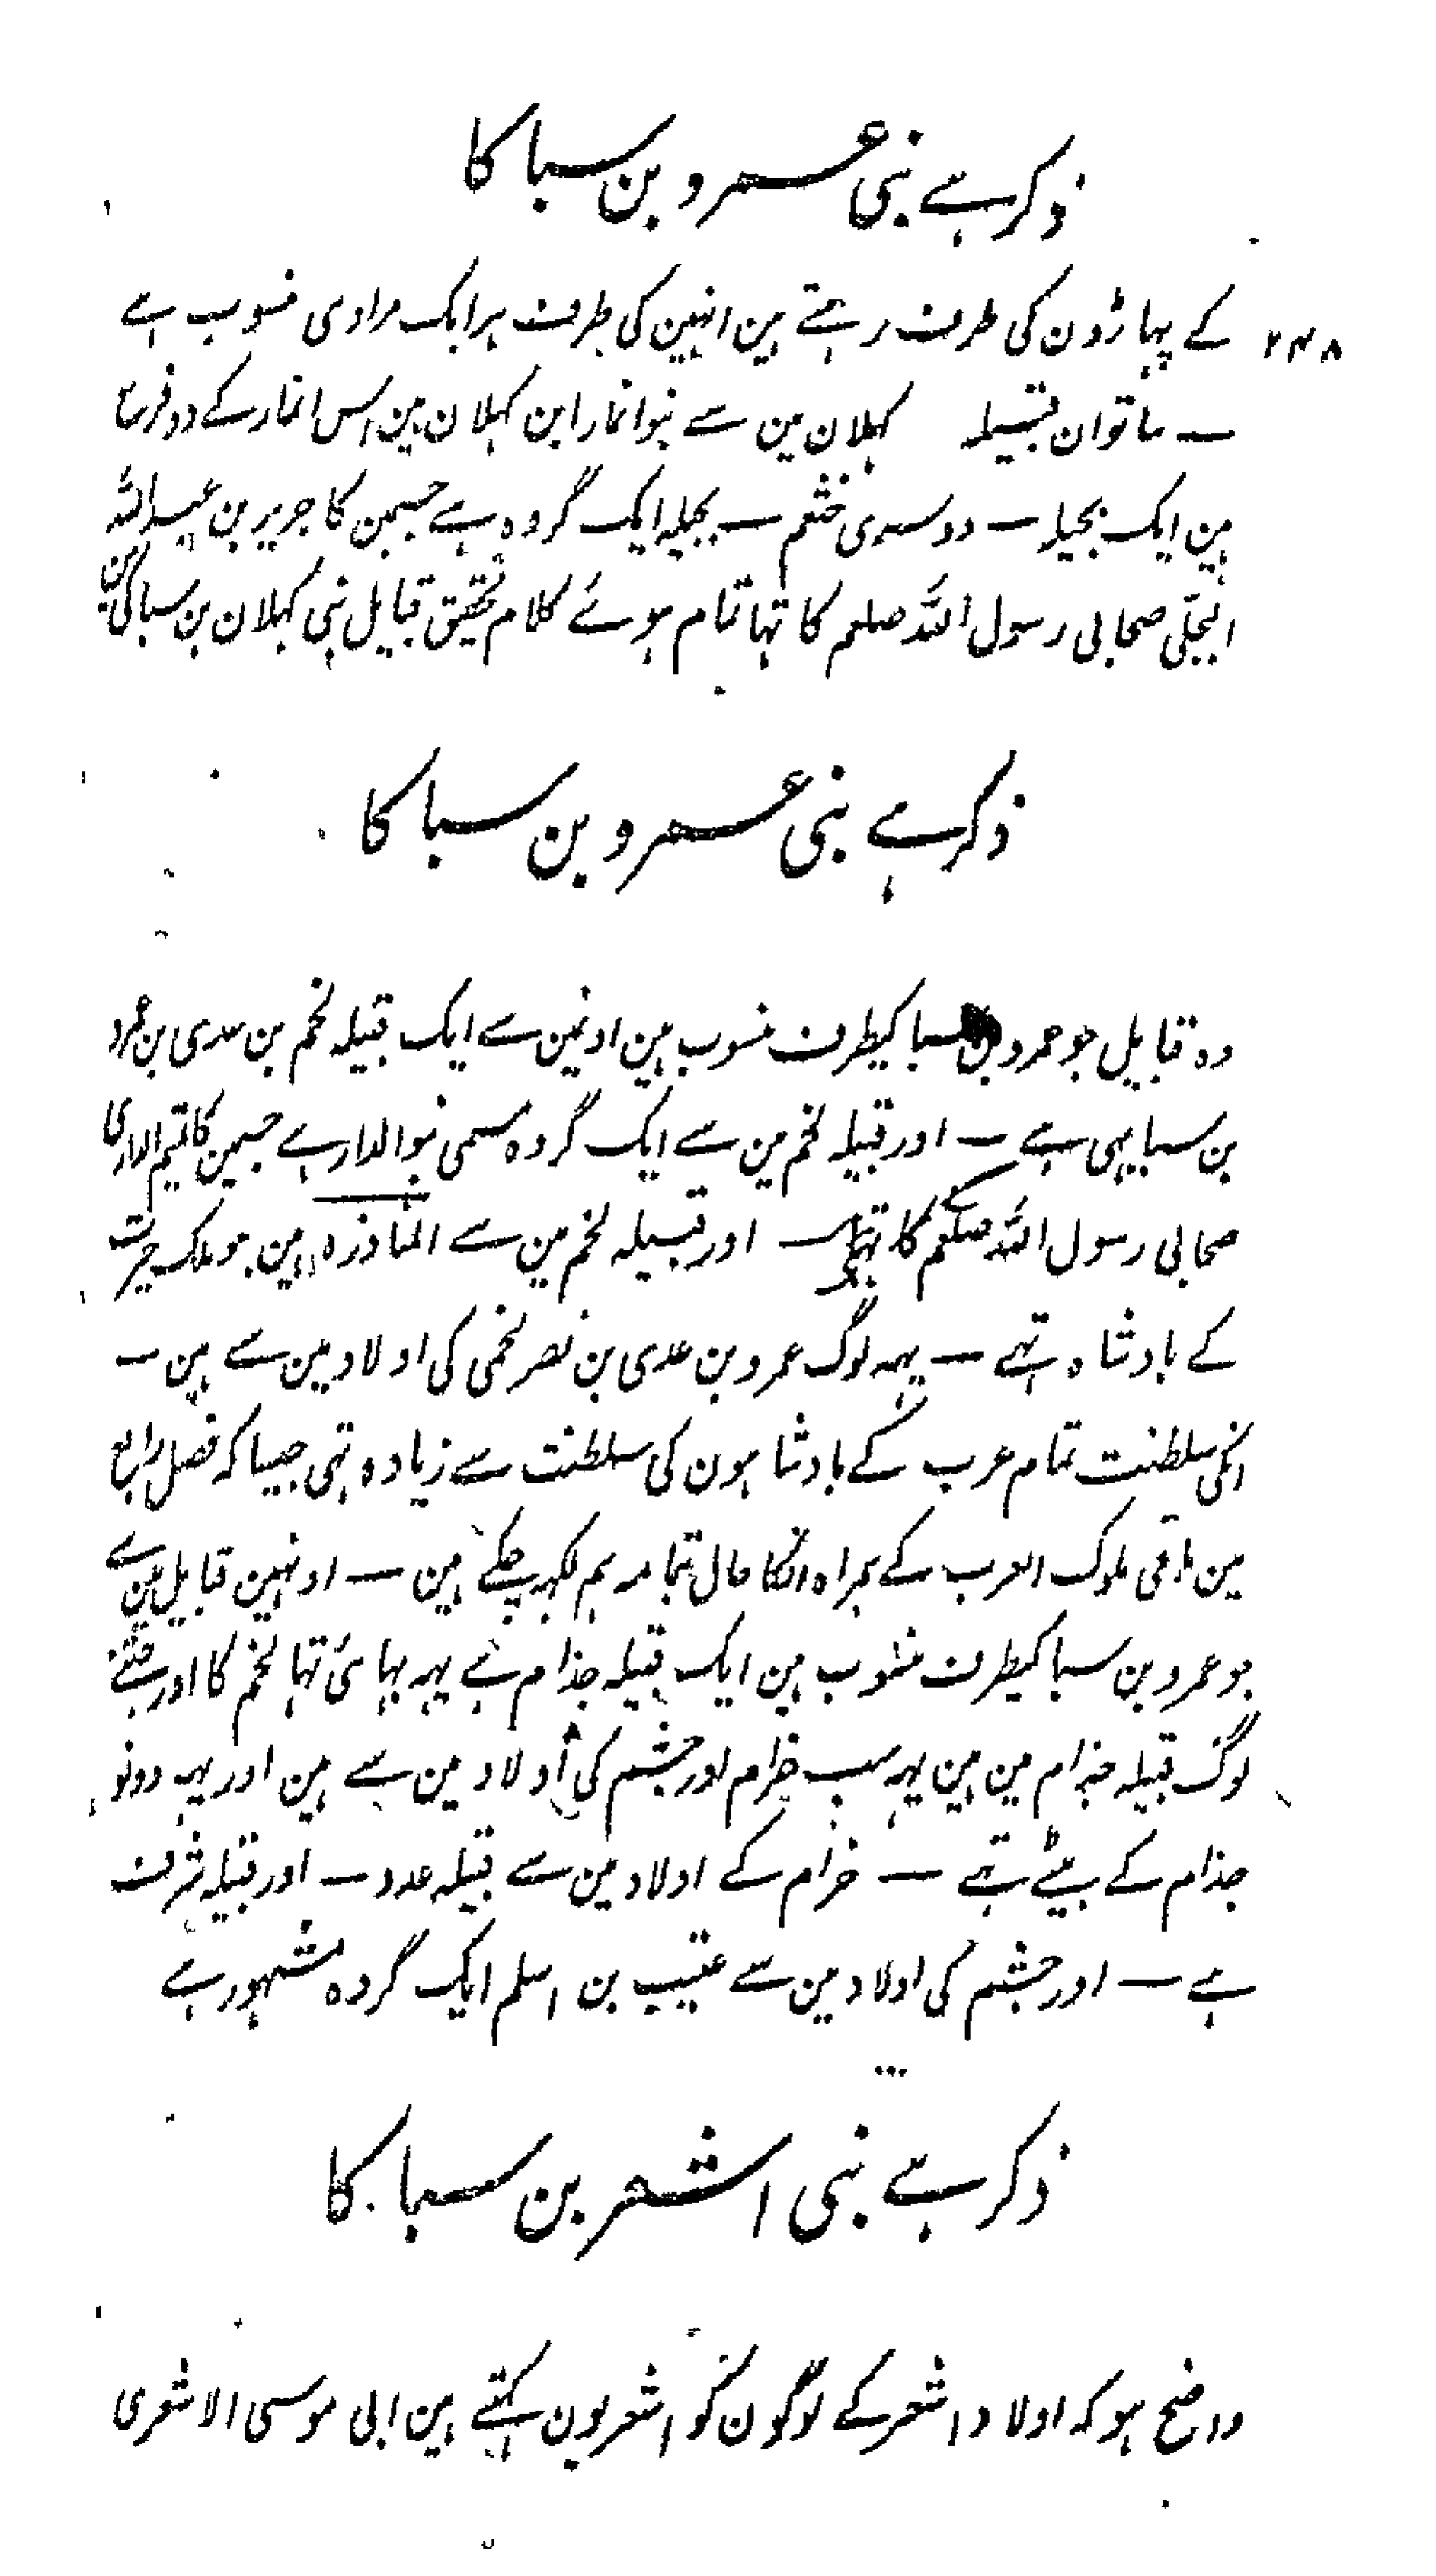 ذکر ہے بنی عمرو بن سبا کا
۲۴۸
کے پہاڑون کی طرف رہتے ہین انہین کی طرف ہر ایک مرادی منسوب ہے
— ساتوان قبیلہ کہلان مین سے بنو انمار ابن کہلان ہین اس انمار کے دو فرقے
ہین ایک بجیلہ — دوسری خثعم — بجیلہ ایک گروہ ہے جسمین کا جریر بن عبداللہ
البجلی صحابی رسول اللہ صلعم کا تہا تمام ہوئے کلام تحقیق قبایل بنی کہلان بن سبا کی مین
ذکر ہے بنی عمرو بن سبا کا
وہ قبایل جو عمرو بن سبا کیطرف منسوب ہین اونمین سے ایک قبیلہ لخم بن عدی بن عمرو
بن سبا یہی ہے — اور قبیلہ لخم مین سے ایک گروہ مسمی بنو الدار ہے جسمین کا تمیم الداری
صحابی رسول اللہ صلعم کا تہا — اور قبیلہ لخم مین سے المناذرہ ہین جو ملک حیرت
کے بادشاہ تہے — یہہ لوگ عمرو بن عدی بن نصر لخمی کی اولاد مین سے ہین —
انکی سلطنت تمام عرب کے بادشاہون کی سلطنت سے زیادہ تہی جیسا کہ فصل رابع
مین باقی ملوک العرب کے ہمراہ انکا حال بتمامہ ہم لکہہ چکے ہین — اونہین قبایل مین سے
جو عمرو بن سبا کیطرف منسوب ہین ایک قبیلہ جذام ہے یہہ بہائی تہا لخم کا اور جتنے
لوگ قبیلہ جذام مین ہین یہہ سب خرام اور جشم کی اولاد مین سے ہین اور یہہ دونو
جذام کے بیٹے تہے — خرام کے اولاد مین سے قبیلہ عدد — اور قبیلہ شرف
ہے — اور جشم کی اولاد مین سے عتیب بن اسلم ایک گروہ مشہور ہے
ذکر ہے بنی اشعر بن سبا کا
واضح ہو کہ اولاد اشعر کے لوگون کو اشعریون کہتے ہین ابی موسی الاشعری